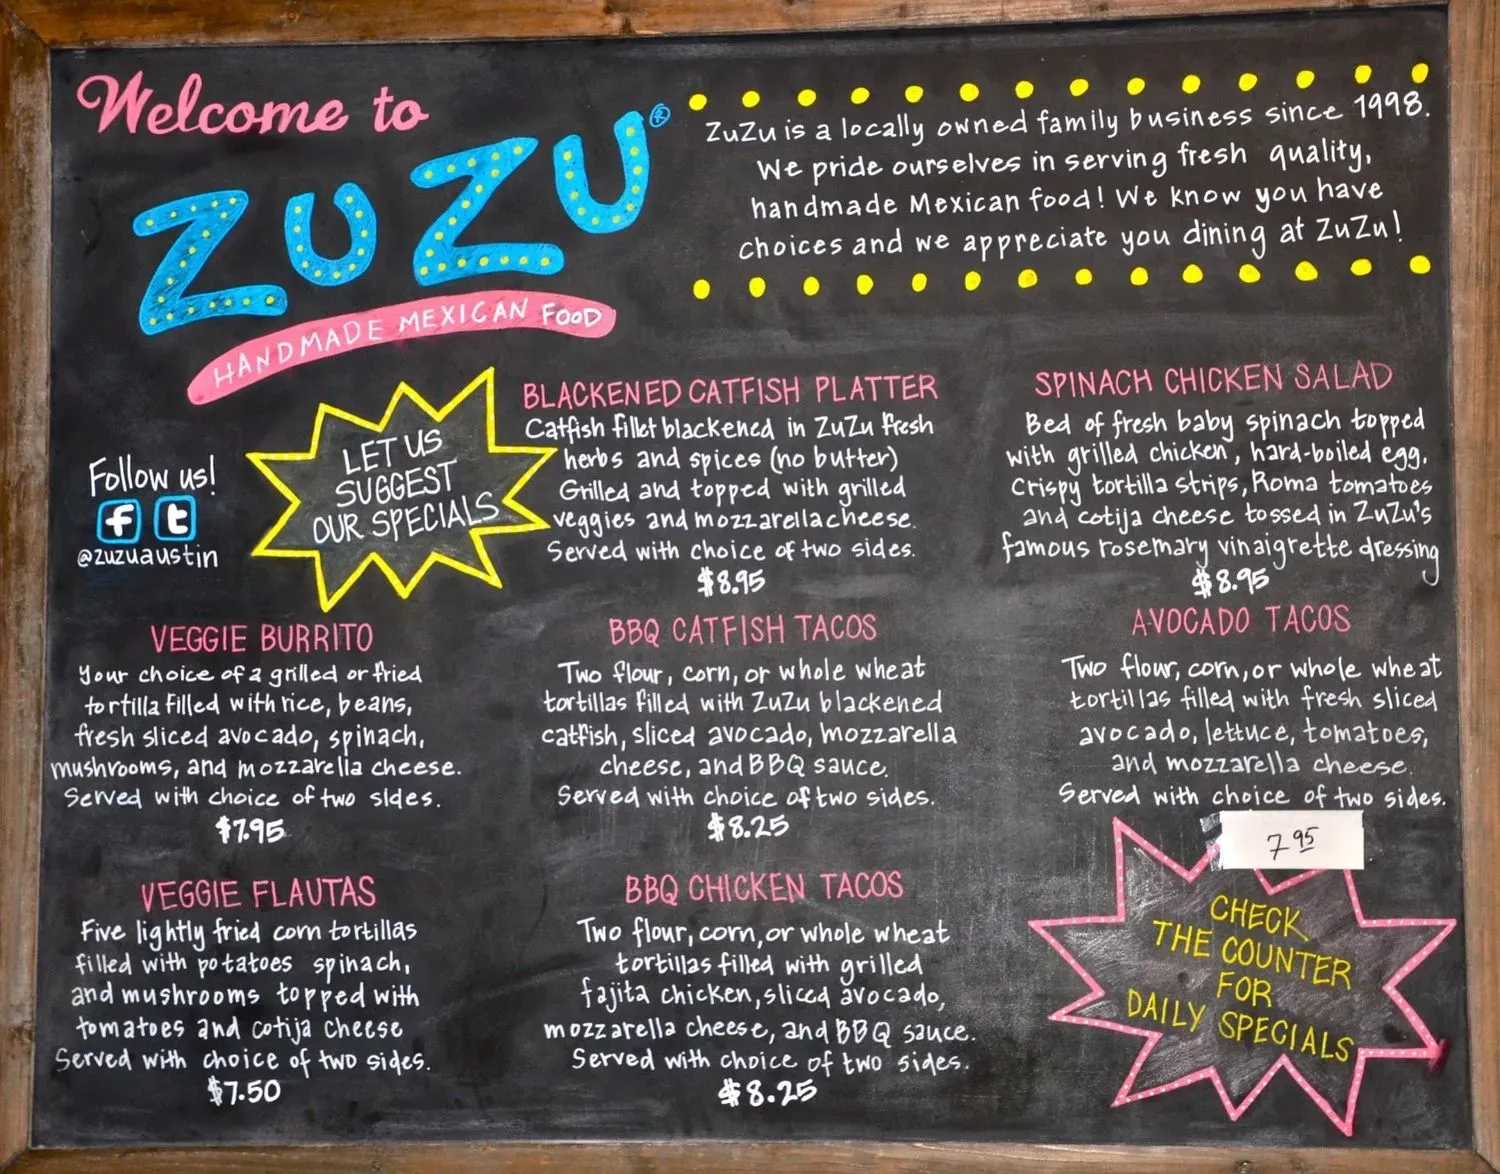 Welcome to
ZUZU®
HANDMADE MEXICAN FOOD
ZuZu is a locally owned family business since 1998.
We pride ourselves in serving fresh quality,
handmade Mexican food! We know you have
choices and we appreciate you dining at ZuZu!
Follow us!
f t
@zuzuaustin
LET US
SUGGEST
OUR SPECIALS
BLACKENED CATFISH PLATTER
Catfish fillet blackened in ZuZu fresh
herbs and spices (no butter)
Grilled and topped with grilled
veggies and mozzarella cheese.
Served with choice of two sides.
$8.95
SPINACH CHICKEN SALAD
Bed of fresh baby spinach topped
with grilled chicken, hard-boiled egg,
crispy tortilla strips, Roma tomatoes
and cotija cheese tossed in ZuZu's
famous rosemary vinaigrette dressing
$8.95
VEGGIE BURRITO
Your choice of a grilled or fried
tortilla filled with rice, beans,
fresh sliced avocado, spinach,
mushrooms, and mozzarella cheese.
Served with choice of two sides.
$7.95
BBQ CATFISH TACOS
Two flour, corn, or whole wheat
tortillas filled with ZuZu blackened
catfish, sliced avocado, mozzarella
cheese, and BBQ sauce.
Served with choice of two sides.
$8.25
AVOCADO TACOS
Two flour, corn, or whole wheat
tortillas filled with fresh sliced
avocado, lettuce, tomatoes,
and mozzarella cheese.
Served with choice of two sides.
7 95
VEGGIE FLAUTAS
Five lightly fried corn tortillas
filled with potatoes spinach,
and mushrooms topped with
tomatoes and cotija cheese
Served with choice of two sides.
$7.50
BBQ CHICKEN TACOS
Two flour, corn, or whole wheat
tortillas filled with grilled
fajita chicken, sliced avocado,
mozzarella cheese, and BBQ sauce.
Served with choice of two sides.
$8.25
CHECK
THE COUNTER
FOR
DAILY SPECIALS